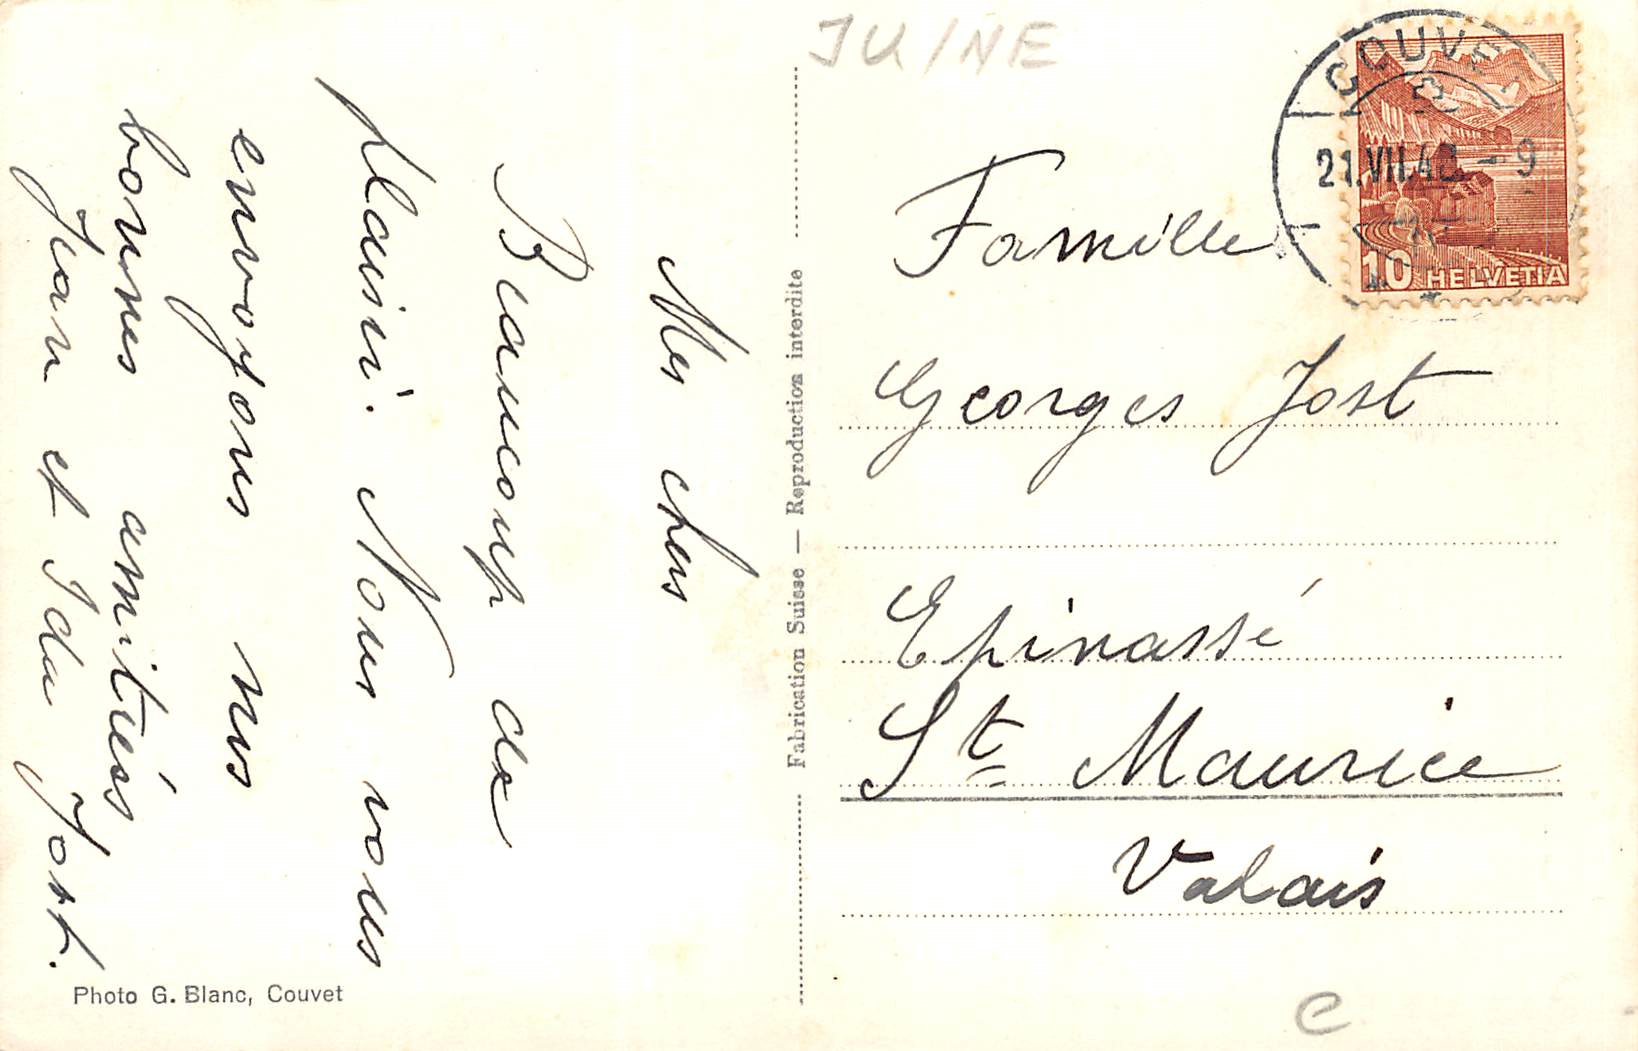 Mes chers
Beaucoup de
plaisir. Nous vous
envoyons nos
bonnes amitiés
Jean et Ida Jost.
Photo G. Blanc, Couvet
Fabrication Suisse — Reproduction interdite
JU/NE
COUVET
21.VII.48. - 9
10 HELVETIA
Famille
Georges Jost
Epinassé
St Maurice
Valais
C